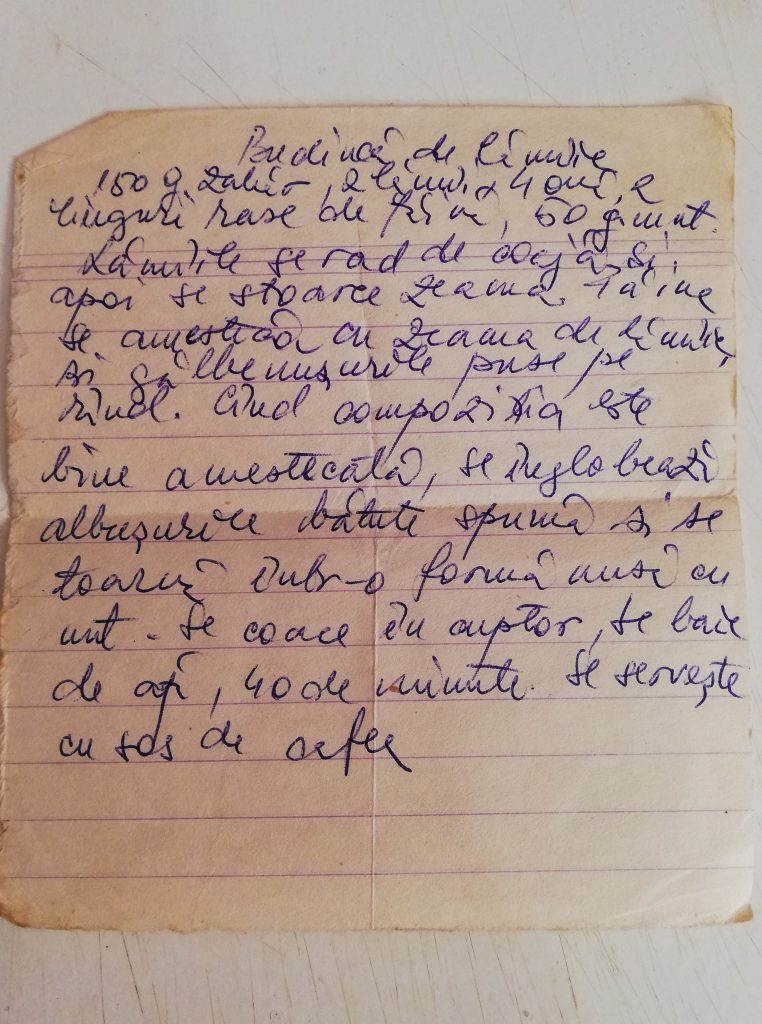 Budincă de lămîie
150 g. zahăr, 2 lămîi, 4 ouă, 2
linguri rase de făină, 50 g unt.
Lămîile se rad de coajă și
apoi se stoarce zeama. Făina
se amestecă cu zeama de lămîie,
și gălbenușurile puse pe
rînd. Cînd compoziția este
bine amestecată, se înglobează
albușurile bătute spumă și se
toarnă într-o formă unsă cu
unt. Se coace în cuptor, pe baie
de apă, 40 de minute. Se servește
cu sos de cafea